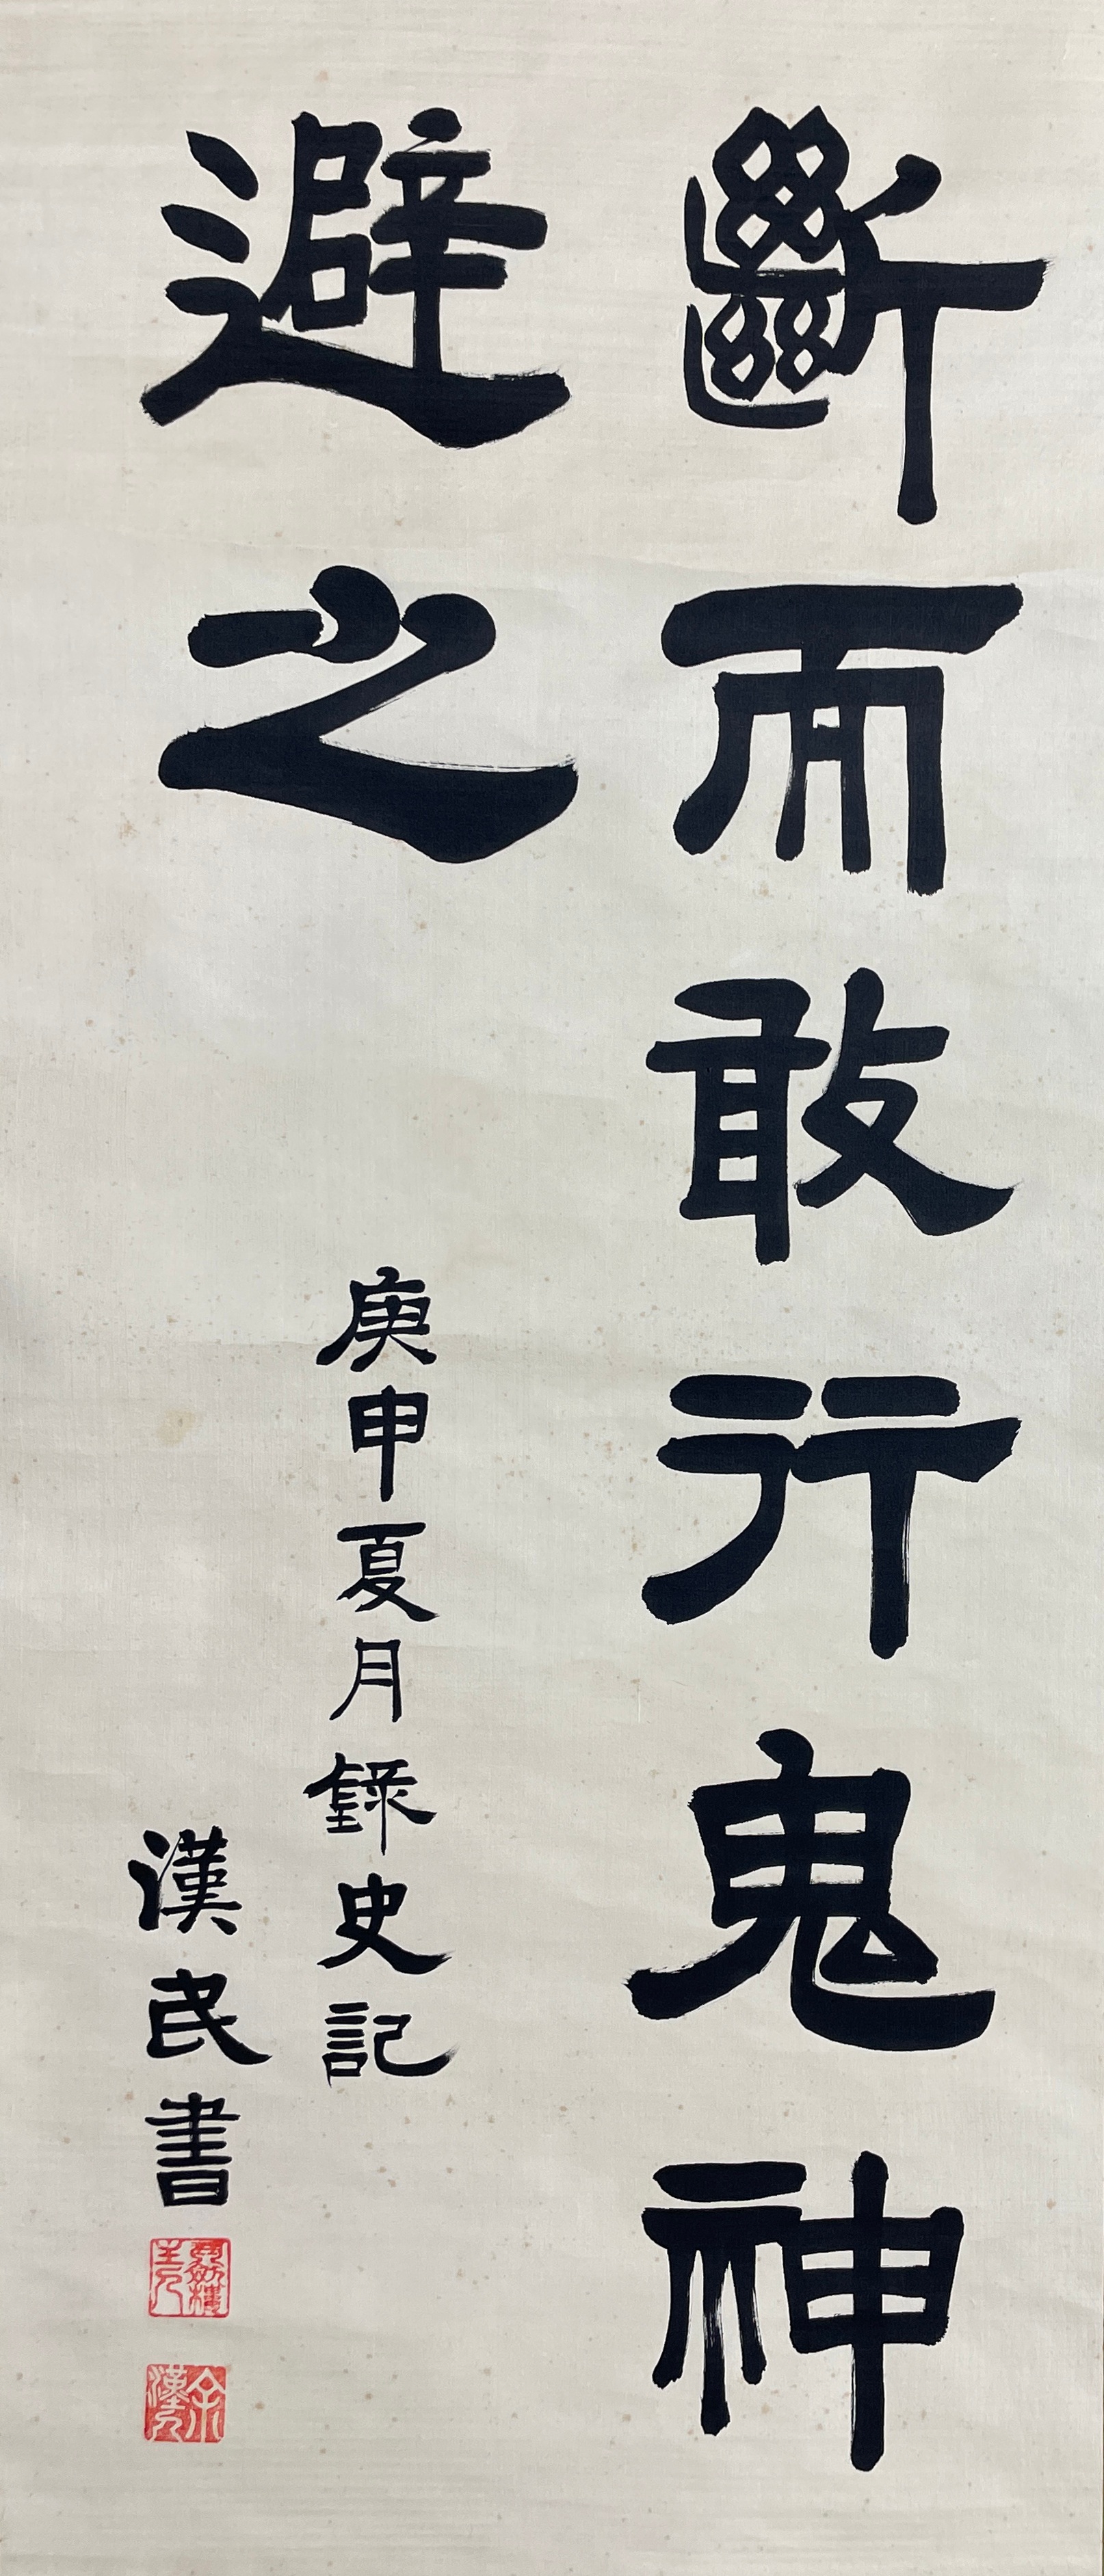 斷而敢行鬼神
避之
庚申夏月錄史記
漢民書
余漢民